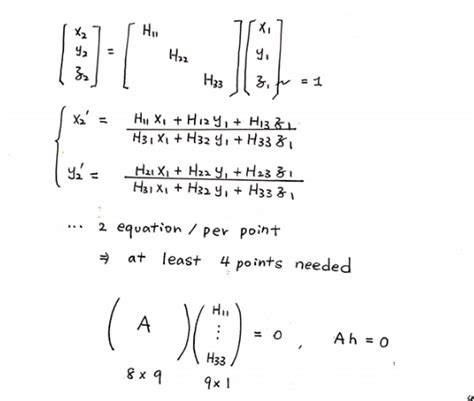 [x2 y2 z2] = [H11 H22 H33] [x1 y1 z1] ~ = 1
x2' = (H11 x1 + H12 y1 + H13 z1) / (H31 x1 + H32 y1 + H33 z1)
y2' = (H21 x1 + H22 y1 + H23 z1) / (H31 x1 + H32 y1 + H33 z1)
... 2 equation / per point
⇒ at least 4 points needed
(A) (H11 ⋮ H33) = 0 , Ah = 0
8 × 9 9 × 1